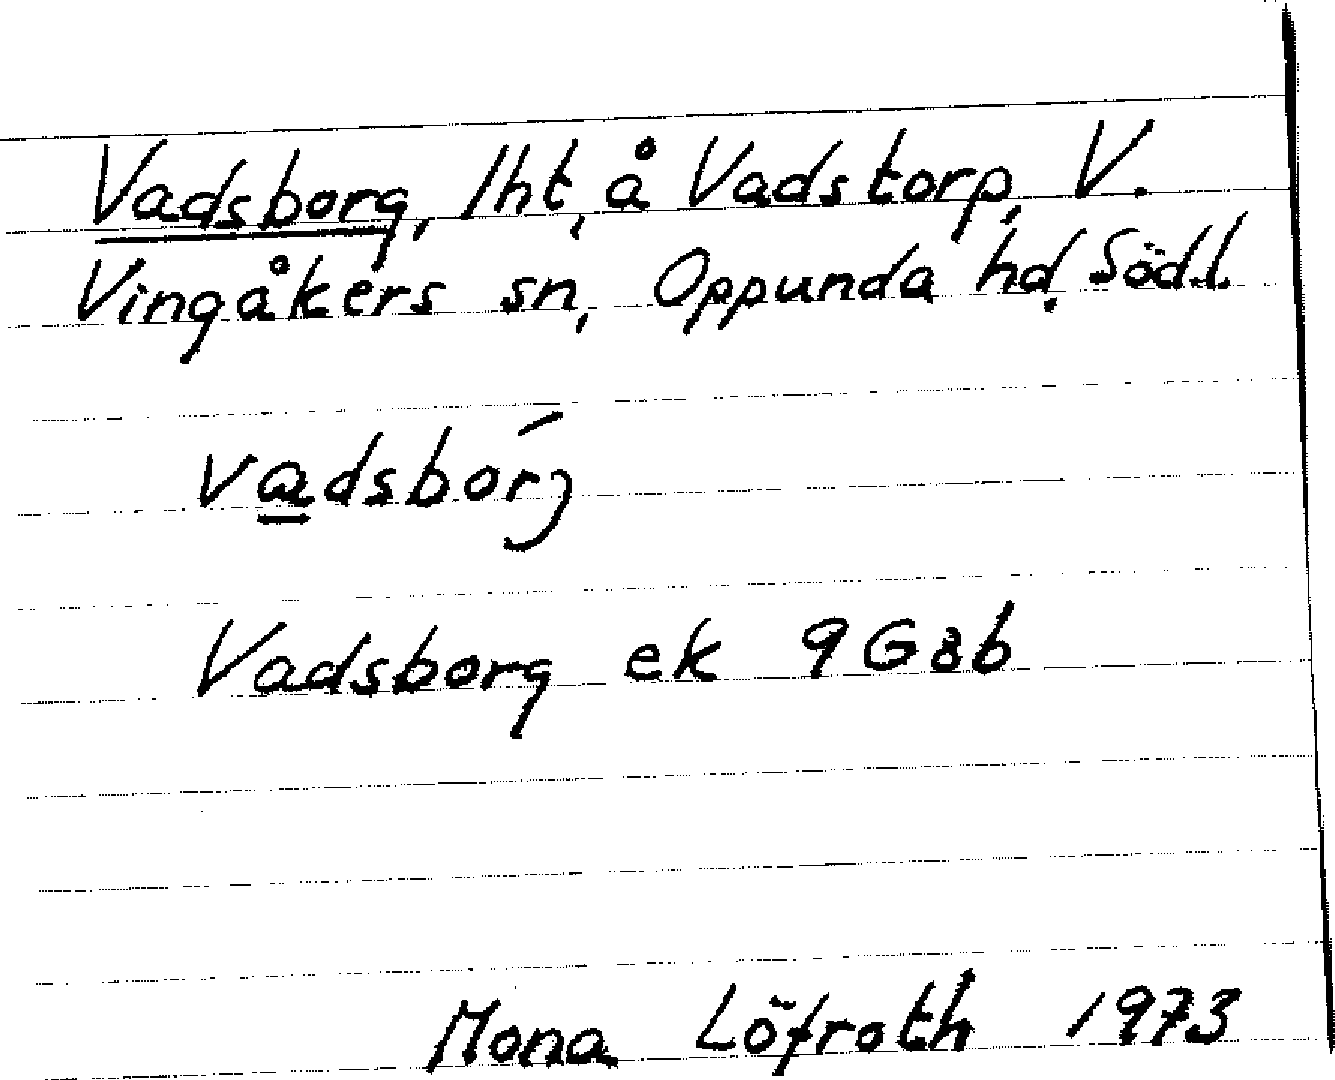 Vadsborg, lht, å Vadstorp, V.
Vingåkers sn, Oppunda hd, Södl.
vadsborj
Vadsborg ek 9G8b
Mona Löfroth 1973